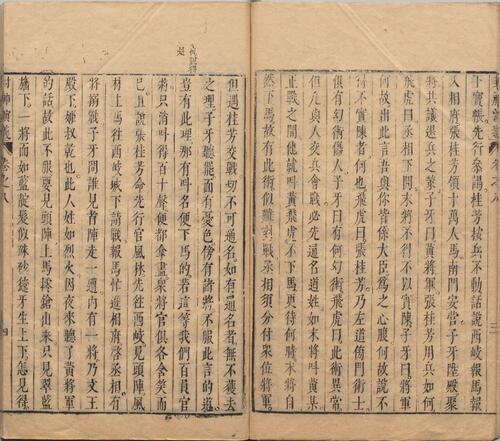 桂芳按兵不動話說西岐報馬報
入相府張桂芳領十萬人馬南門安營子牙陞殿聚
將共議退兵之策子牙曰黃將軍張桂芳用兵如何
飛虎曰丞相下問末將不得不以實陳子牙曰將軍
何故出此言吾與你皆係大臣爲之心腹何故說不
得不實陳者何也飛虎曰張桂芳乃左道傍門術士
俱有幻術傷人子牙曰有何幻術飛虎曰此術異常
但凡與人交兵會戰必先通名道姓如末將叫黃某
正戰之間他就叫黃飛虎不下馬更待何時末將自
然下馬故有此術似難對戰丞相須分付衆位將軍
但遇桂芳交戰切不可通名如有通名者無不獲去
之理子牙聽罷面有憂色傍有諸將不服此言的道
豈有此理那有叫名便下馬的若這等我們百員官
將只消叫得百十聲便都拿盡衆將官俱各含笑而
已且說張桂芳命先行官風林先往西岐見頭陣風
林上馬往西岐城下請戰報馬忙進相府啓丞相有
將搦戰子牙問誰見首陣走一遭內有一將乃文王
殿下姬叔乾也此人姓如烈火因夜來聽了黃將軍
的話故此不服要見頭陣上馬搦鎗出來只見翠藍
旛下一將面如藍靛髮似硃砂獠牙生上下怎見得
封神演義 卷之八 四